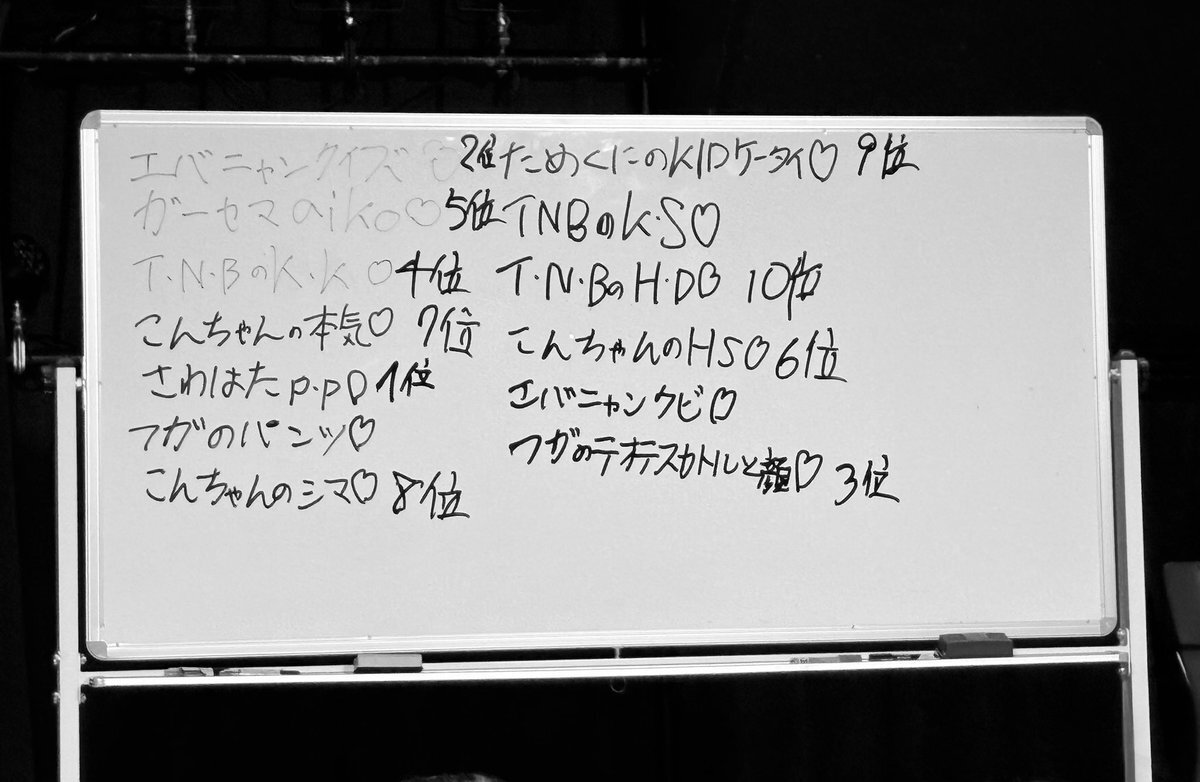 エバニャンクイズ♡ 2位
ガーセマのiko♡ 5位
T.N.BのK.K♡ 4位
こんちゃんの本気♡ 7位
さわはたP.P♡ 1位
フガのパンツ♡
こんちゃんのシマ♡ 8位
ためくにのKIDケータイ♡ 9位
TNBのK.S♡
T.N.BのH.D♡ 10位
こんちゃんのHS♡ 6位
エバニャンクビ♡
フガのテオテスカトルと顔♡ 3位